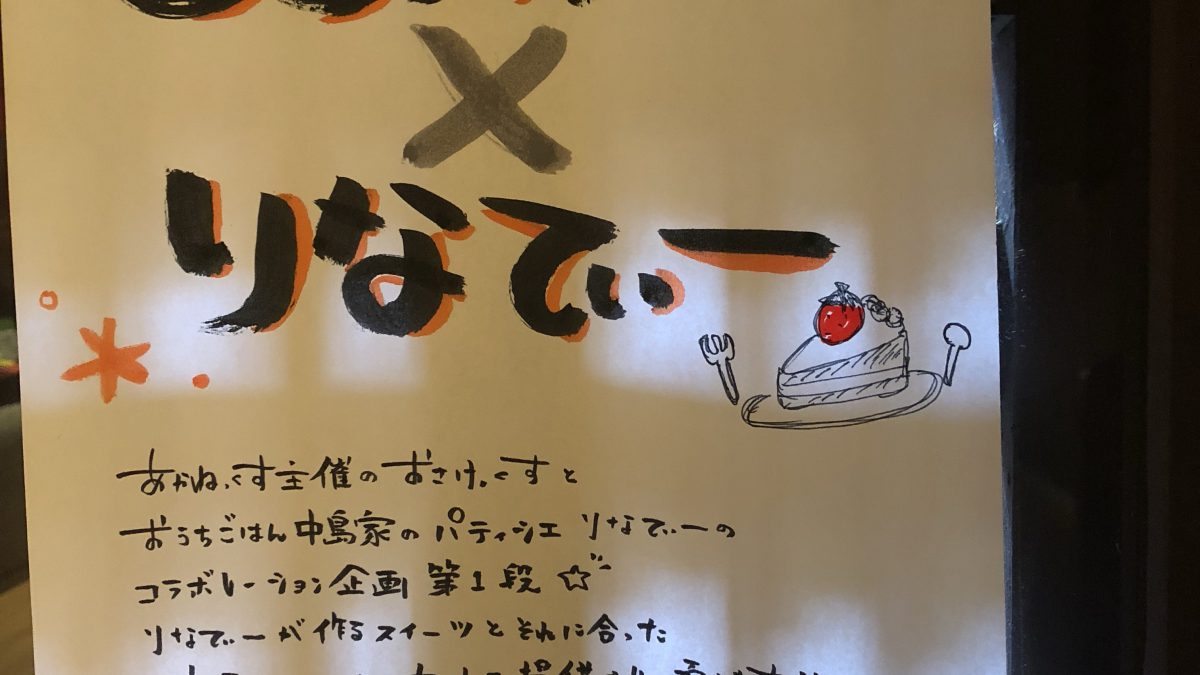 ×
りなでぃー
あかねっくす主催のおさけっくすと
おうちごはん中島家のパティシエ りなでぃーの
コラボレーション企画 第1段☆
りなでぃーが作るスイーツとそれに合った